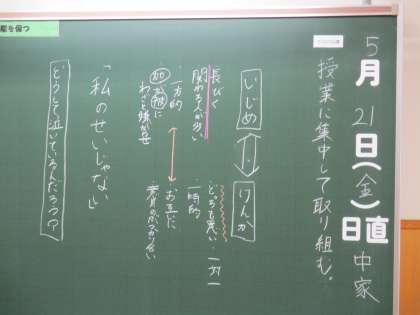 5月21日(金)日直 中家
授業に集中して取り組む。
いじめ ⇔ けんか
長びく
関わる人が多い
どちらも悪い 一対一
一方的
一時的
わざと嫌がせ
お互いに
意見のぶつかり合い
「私のせいじゃない」
どうして泣いているんだろう?